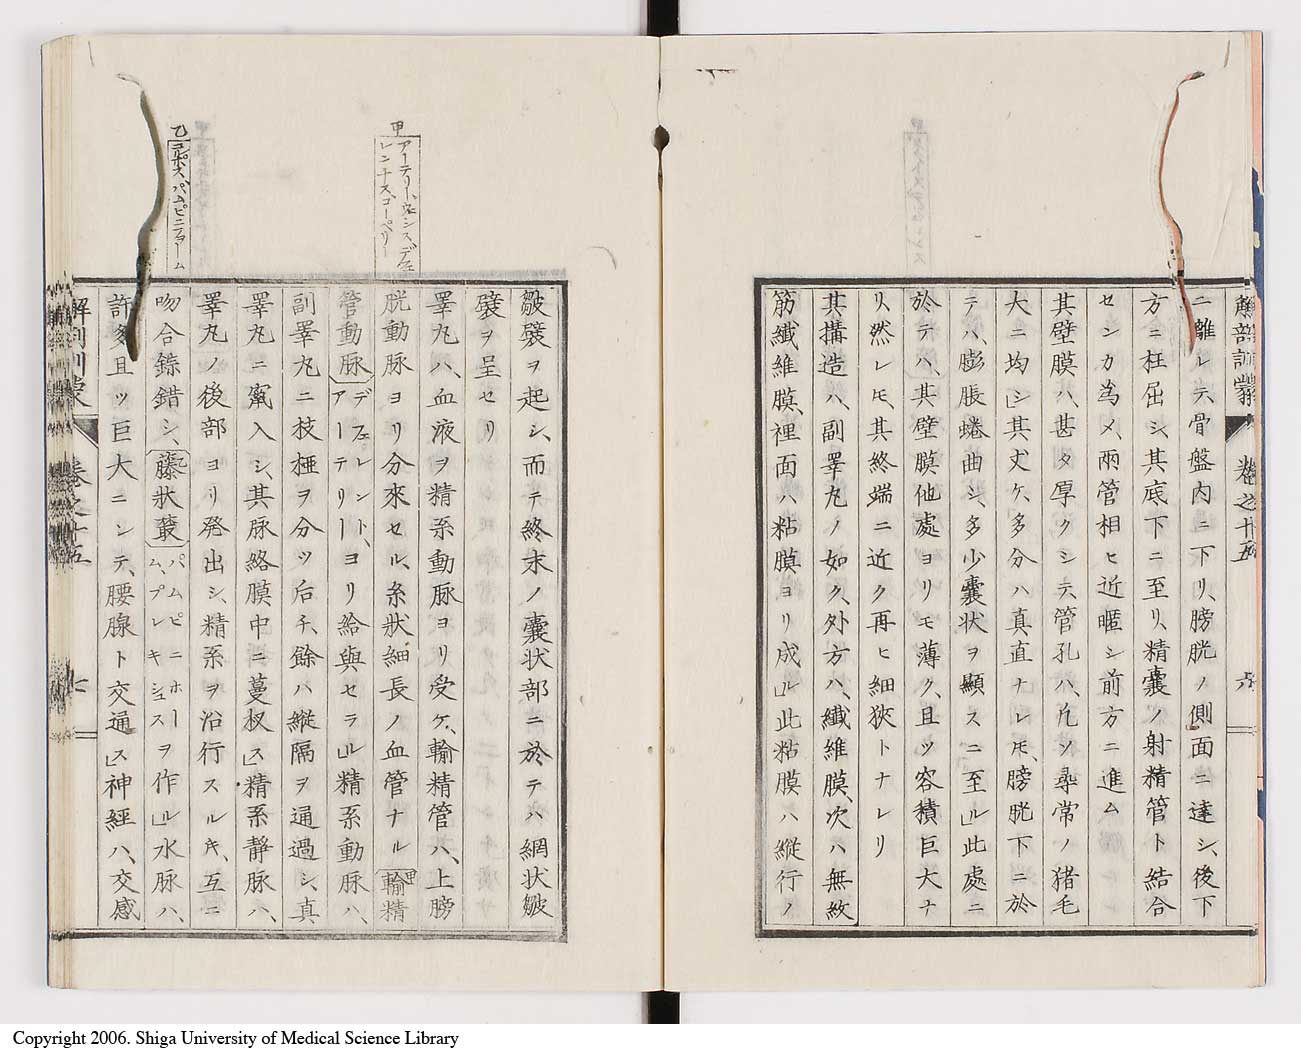 解剖訓蒙 巻之十五 六
ニ離レテ、骨盤内ニ下リ、膀胱ノ側面ニ達シ、後下
方ニ枉屈シ、其底下ニ至リ、精嚢ノ射精管ト結合
センカ為メ、両管相ヒ近暱シ前方ニ進ム
其壁膜ハ、甚タ厚クシテ、管孔ハ、凢ソ尋常ノ猪毛
大ニ均シ」其丈ケ、多分ハ真直ナレモ、膀胱下ニ於
テハ、膨脹蜷曲シ、多少嚢状ヲ顯スニ至ル」此處ニ
於テハ、其壁膜他處ヨリモ薄ク、且ツ容積巨大ナ
リ、然レモ、其終端ニ近ク再ヒ細狹トナレリ
其搆造ハ、副睪丸ノ如ク、外方ハ、纎維膜、次ハ無紋
筋纎維膜、裡面ハ粘膜ヨリ成ル」此粘膜ハ縦行ノ
皺襞ヲ起シ、而テ終末ノ嚢状部ニ於テハ網状皺
襞ヲ呈セリ
睪丸ハ、血液ヲ精系動脉ヨリ受ケ、輸精管ハ、上膀
甲 アーテリー、ヴェシス、デフェ
レンチス、コーペリー
胱動脉ヨリ分來セル、糸状細長ノ血管ナル甲輸精
管動脉 デフェレント、アーテリー ヨリ給與セラル」精系動脉ハ、
副睪丸ニ枝椏ヲ分ツ后チ、餘ハ縦隔ヲ通過シ、真
睪丸ニ竄入シ、其脉絡膜中ニ蔓杈ス」精系静脉ハ、
睪丸ノ後部ヨリ発出シ、精系ヲ沿行スルキ、互ニ
乙 コルポス、パムピニフォーム
吻合錯錯シ、乙藤状叢 パムピニホーム、プレキシュス ヲ作ル」水脉ハ、
許多且ツ巨大ニシテ、腰腺ト交通ス」神經ハ、交感
解剖訓蒙 巻之十五 七
Copyright 2006. Shiga University of Medical Science Library